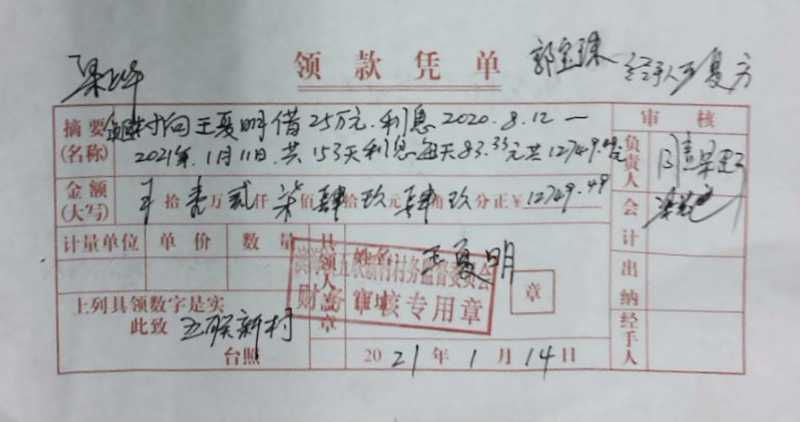 领款凭单
郭宝珠 经手人王夏方
审核
摘要(名称) 村向王夏明借25万元.利息2020.8.12—
2021年.1月11日.共153天利息每天83.33元共12749.49元
负责人
金额(大写) 拾壹万贰仟柒佰肆拾玖元肆角玖分正¥12749.49
会计
计量单位 单价 数量 具领人盖章 姓名 王夏明
村务监督委员会
财务审核专用章
章
出纳
上列具领数字是实
此致 五联新村
台照
2021年1月14日
经手人